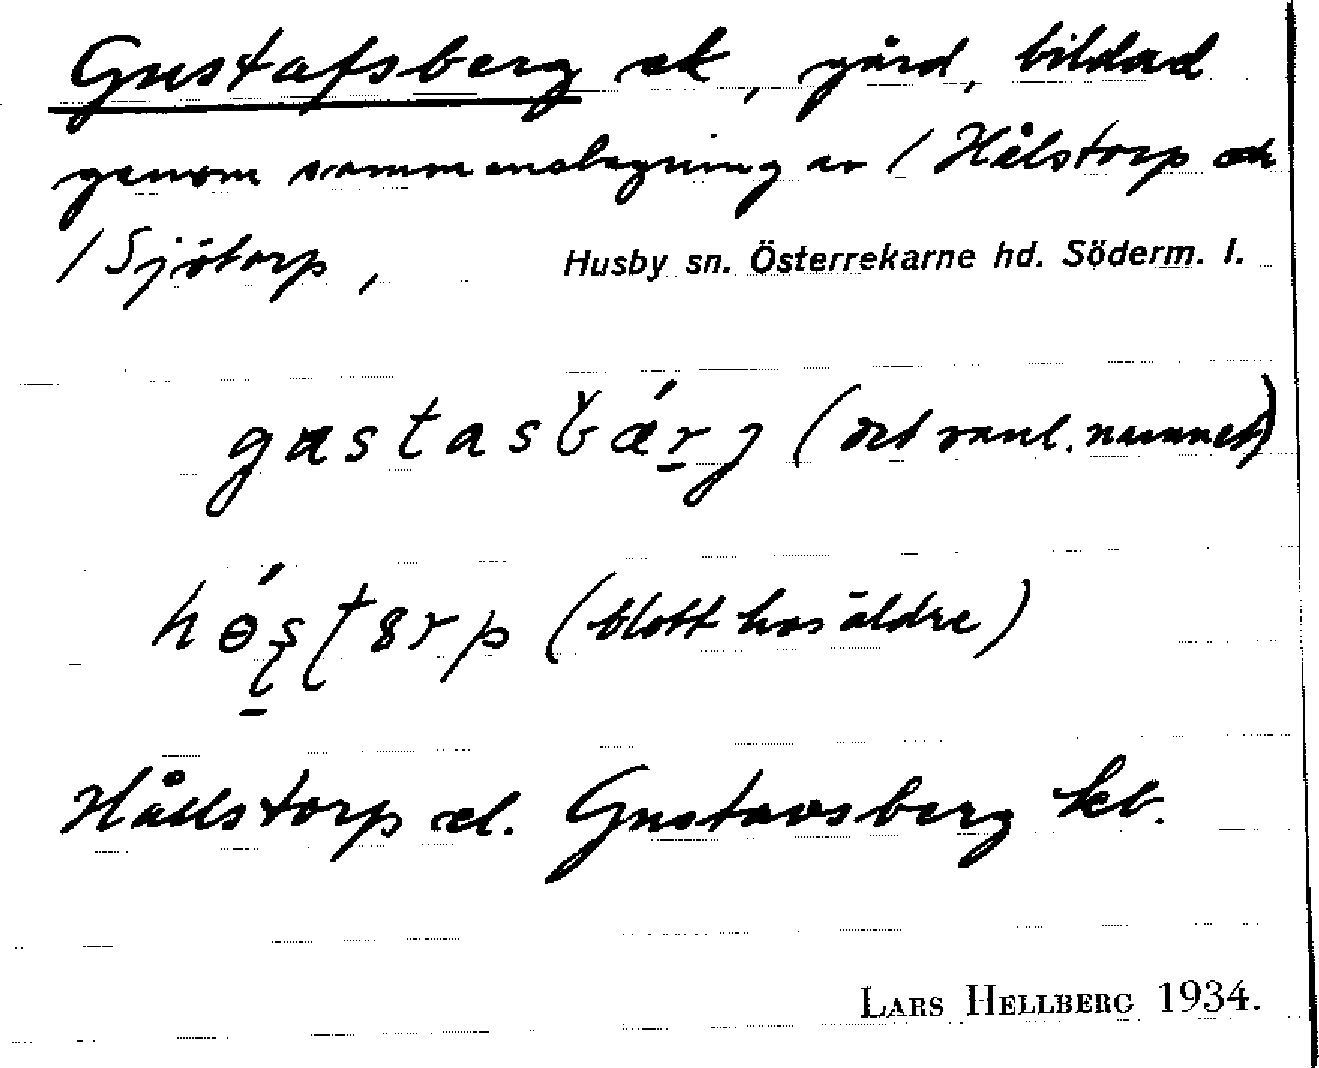 Gustafsberg ek, gård, bildad
genom sammanslagning av / Hålstorp och
/ Sjötorp,
Husby sn. Österrekarne hd. Söderm. l.
(det vanl. namnet)
(blott hos äldre)
Hållstorp el. Gustavsberg kb.
LARS HELLBERG 1934.